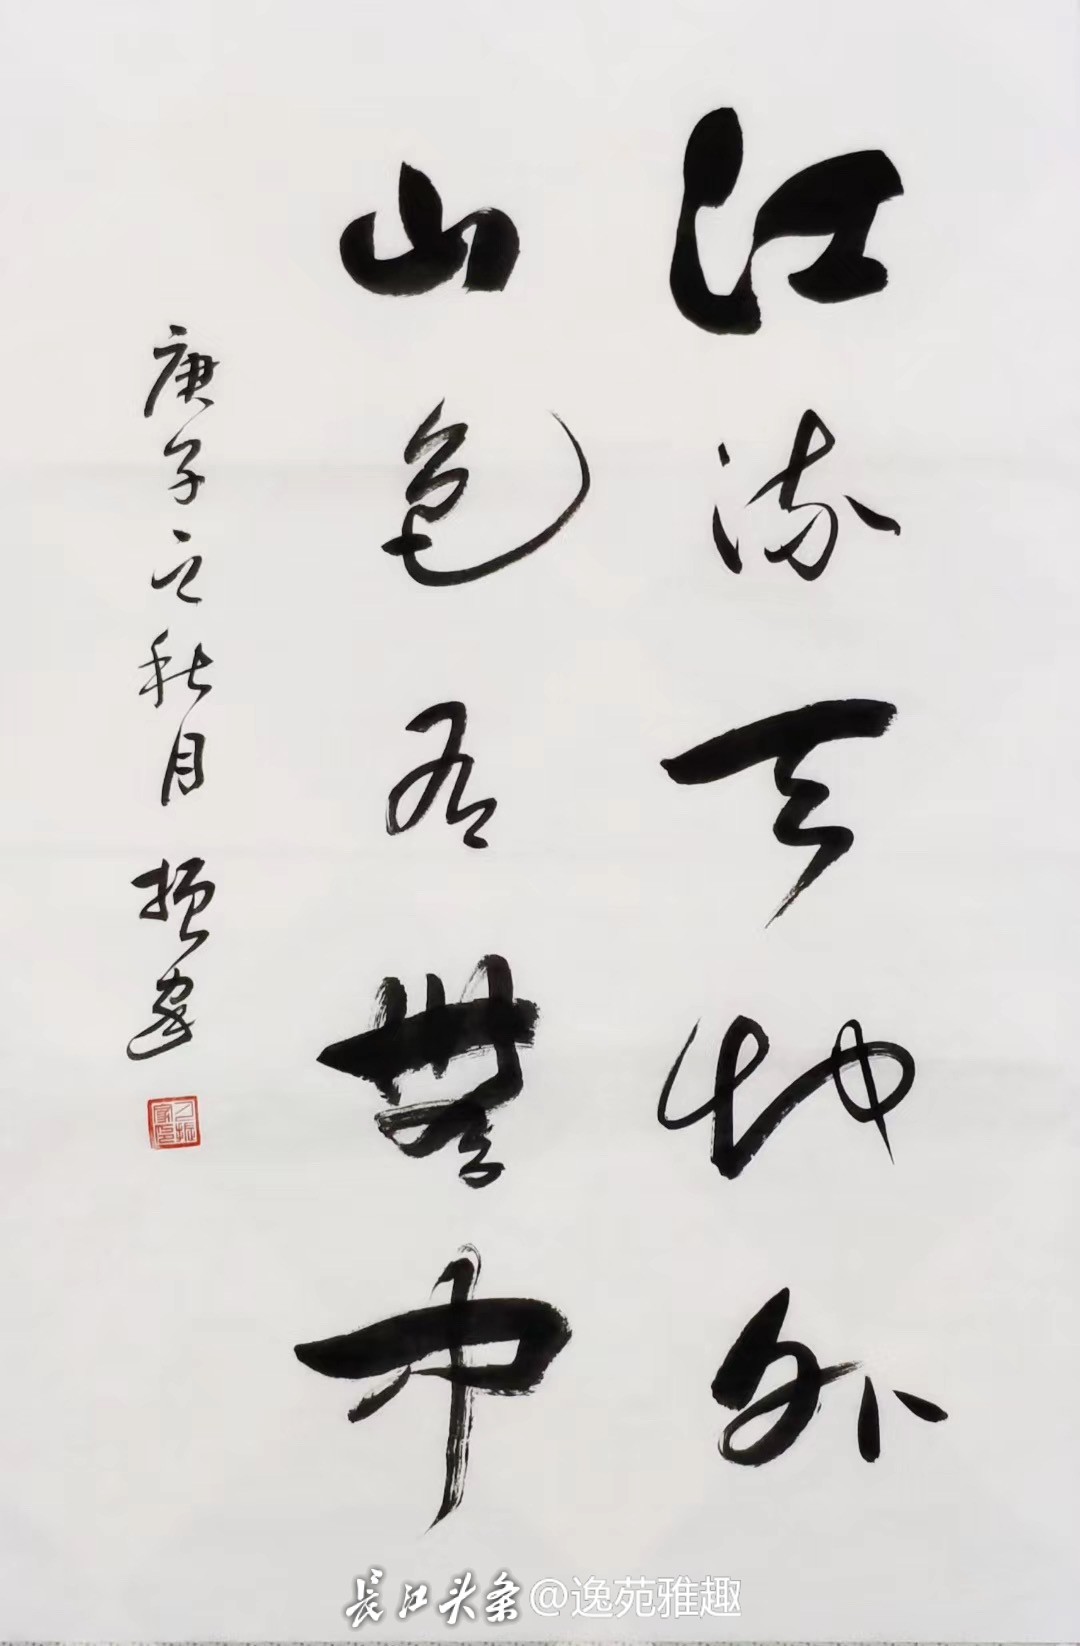 江流天地外
山色有無中
庚子之秋月振家
長江头条@逸苑雅趣